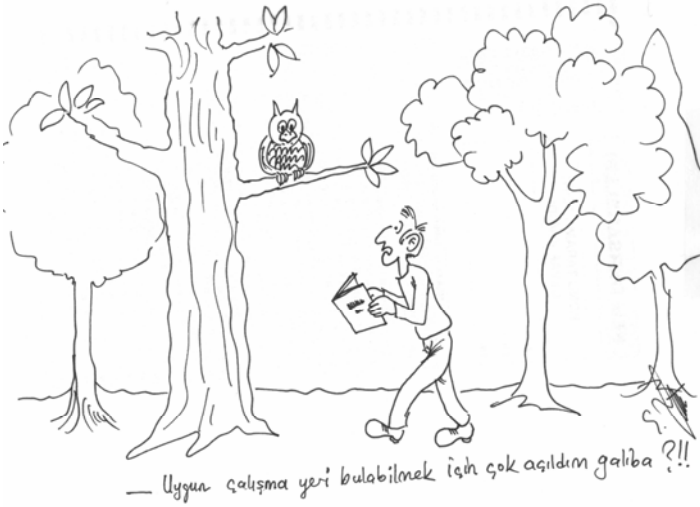 — Uygun çalışma yeri bulabilmek için çok açıldım galiba ?!!